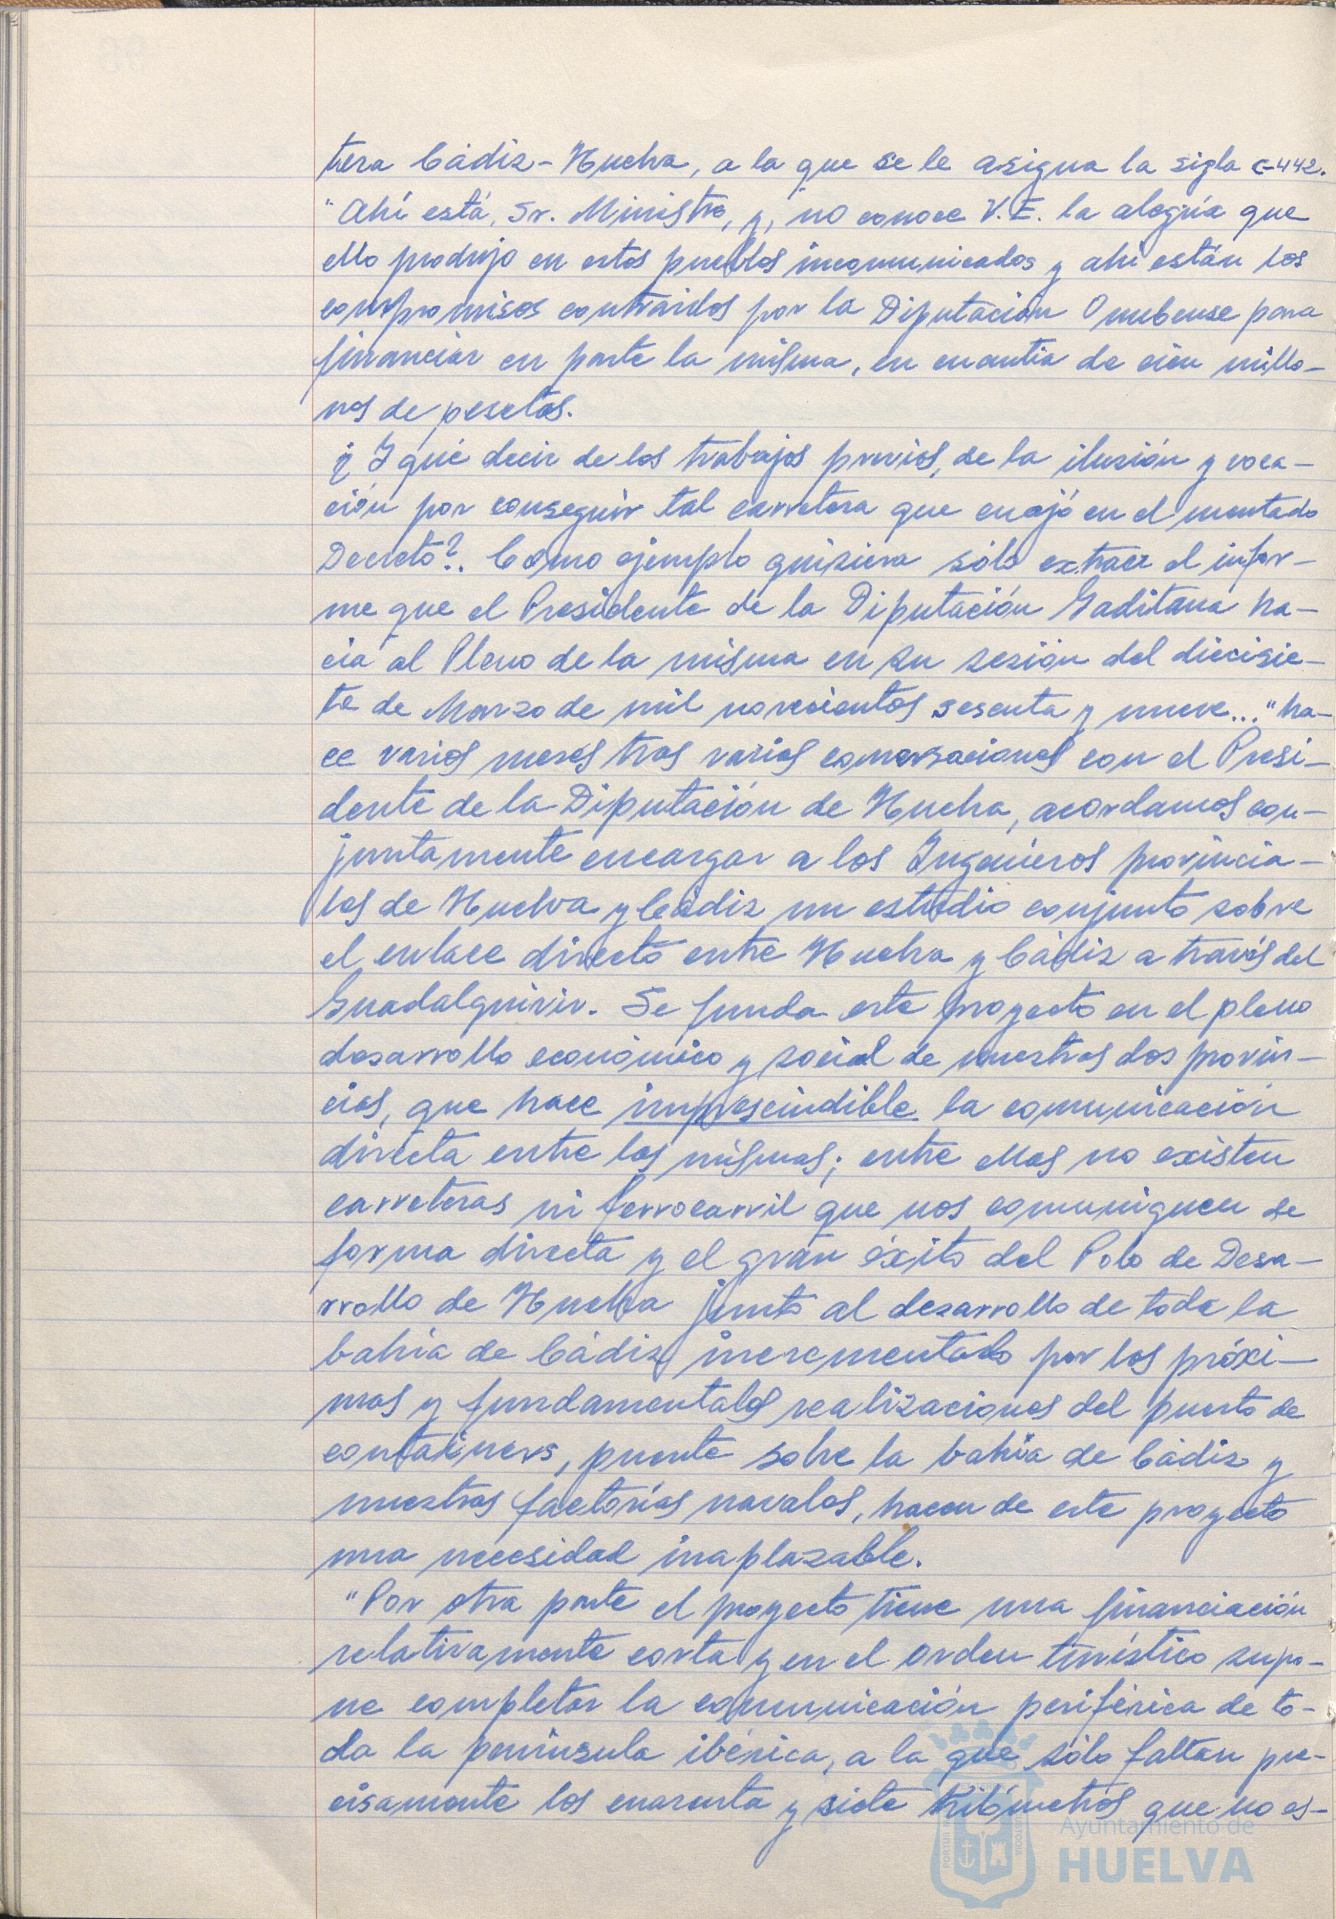 tera Cádiz-Huelva, a la que se le asigna la sigla C-442.
"Ahí está, Sr. Ministro, y, no conoce V.E. la alegría que
ello produjo en estos pueblos incomunicados y ahí están los
compromisos contraidos por la Diputación Onubense para
financiar en parte la misma, en cuantía de cien millo-
nes de pesetas.
¿Y qué decir de los trabajos previos, de la ilusión y voca-
ción por conseguir tal carretera que cuajó en el mentado
Decreto?. Como ejemplo quisiera sólo extraer el infor-
me que el Presidente de la Diputación Gaditana ha-
cía al Pleno de la misma en su sesión del diecisie-
te de Marzo de mil novecientos sesenta y nueve..."ha-
ce varios meses tras varias conversaciones con el Presi-
dente de la Diputación de Huelva, acordamos con-
juntamente encargar a los Ingenieros provincia-
les de Huelva y Cádiz un estudio conjunto sobre
el enlace directo entre Huelva y Cádiz a través del
Guadalquivir. Se funda este proyecto en el pleno
desarrollo económico y social de nuestras dos provin-
cias, que hace imprescindible la comunicación
directa entre las mismas; entre ellas no existen
carreteras ni ferrocarril que nos comuniquen de
forma directa y el gran éxito del Polo de Desa-
rrollo de Huelva junto al desarrollo de toda la
bahía de Cádiz incrementado por las próxi-
mas y fundamentales realizaciones del puerto de
containers, puente sobre la bahía de Cádiz y
nuestras factorías navales, hacen de este proyecto
una necesidad inaplazable.
"Por otra parte el proyecto tiene una financiación
relativamente corta y en el orden turístico supo-
ne completar la comunicación periférica de to-
da la península ibérica, a la que sólo faltan pre-
cisamente los cuarenta y siete kilómetros que no es-
Ayuntamiento de
HUELVA